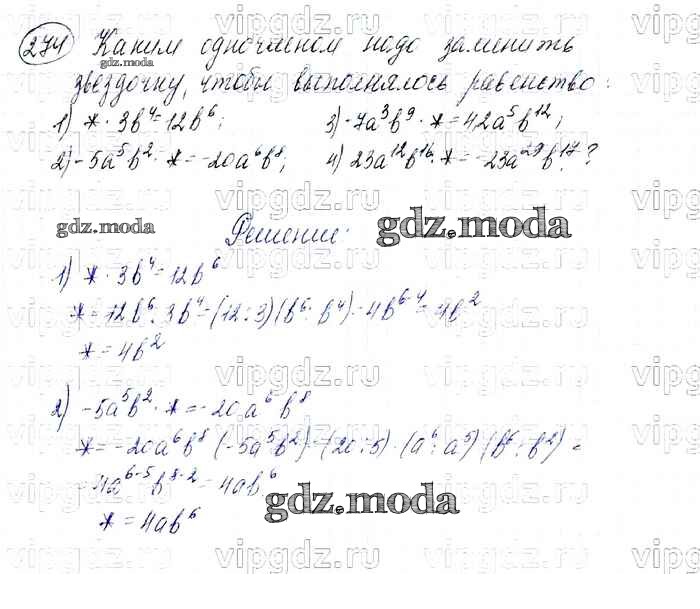 274 Каким одночленом надо заменить
gdz.moda
звездочку, чтобы выполнялось равенство:
1) * · 3b⁴ = 12b⁶; 3) -7a³b⁹ · * = 42a⁵b¹²;
2) -5a⁵b² · * = -20a⁶b⁸; 4) 23a¹²b¹⁶ · * = -23a²⁹b¹⁷?
gdz.moda Решение: gdz.moda
1) * · 3b⁴ = 12b⁶
* = 12b⁶ : 3b⁴ = (12:3)(b⁶ : b⁴) = 4b⁶⁻⁴ = 4b²
* = 4b²
2) -5a⁵b² · * = -20a⁶b⁸
* = -20a⁶b⁸ : (-5a⁵b²) = (20:5) · (a⁶ : a⁵) (b⁸ : b²) =
= 4a⁶⁻⁵b⁸⁻² = 4ab⁶
gdz.moda
* = 4ab⁶
vipgdz.ru